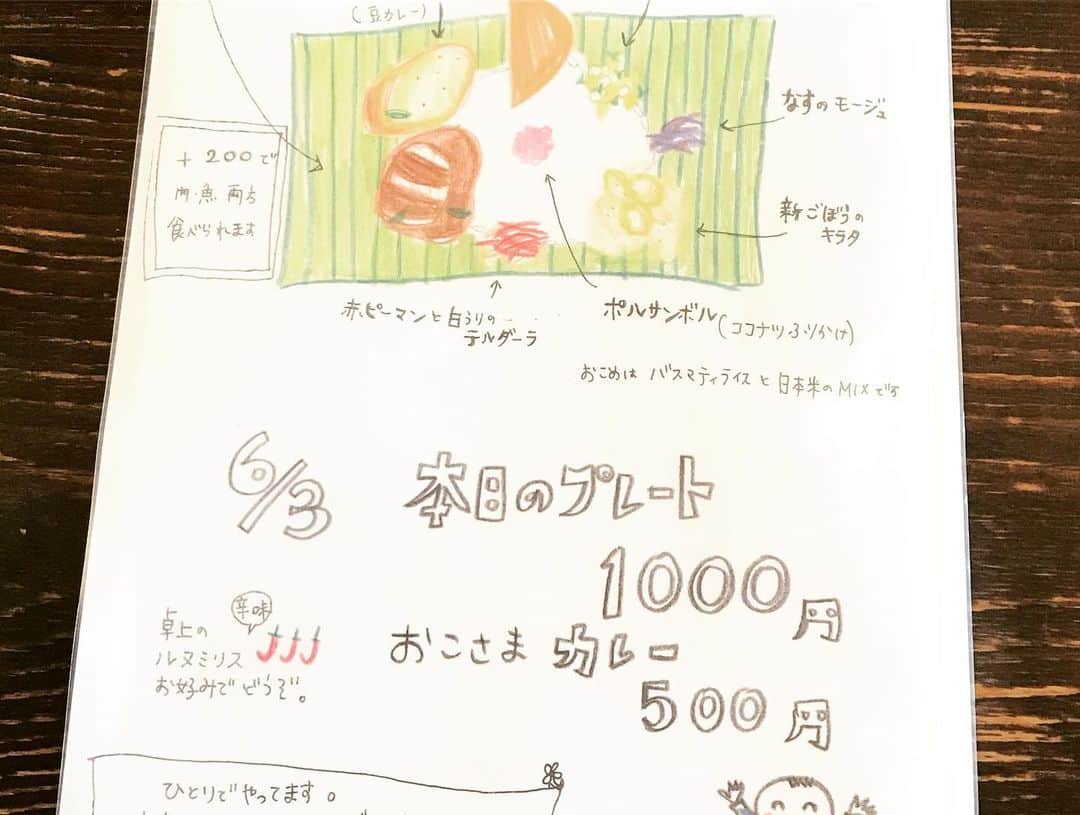 (豆カレー)
なすのモージュ
+200で
肉・魚 両方
食べられます
新ごぼうの
キラタ
赤ピーマンと白うりの
テルダーラ
ポルサンボル(ココナツふりかけ)
おこめは バスマティライスと日本米のMIXです
6/3 本日のプレート
1000円
辛味
卓上の
ルヌミリス
お好みでどうぞ。
おこさま カレー
500円
ひとりでやってます。